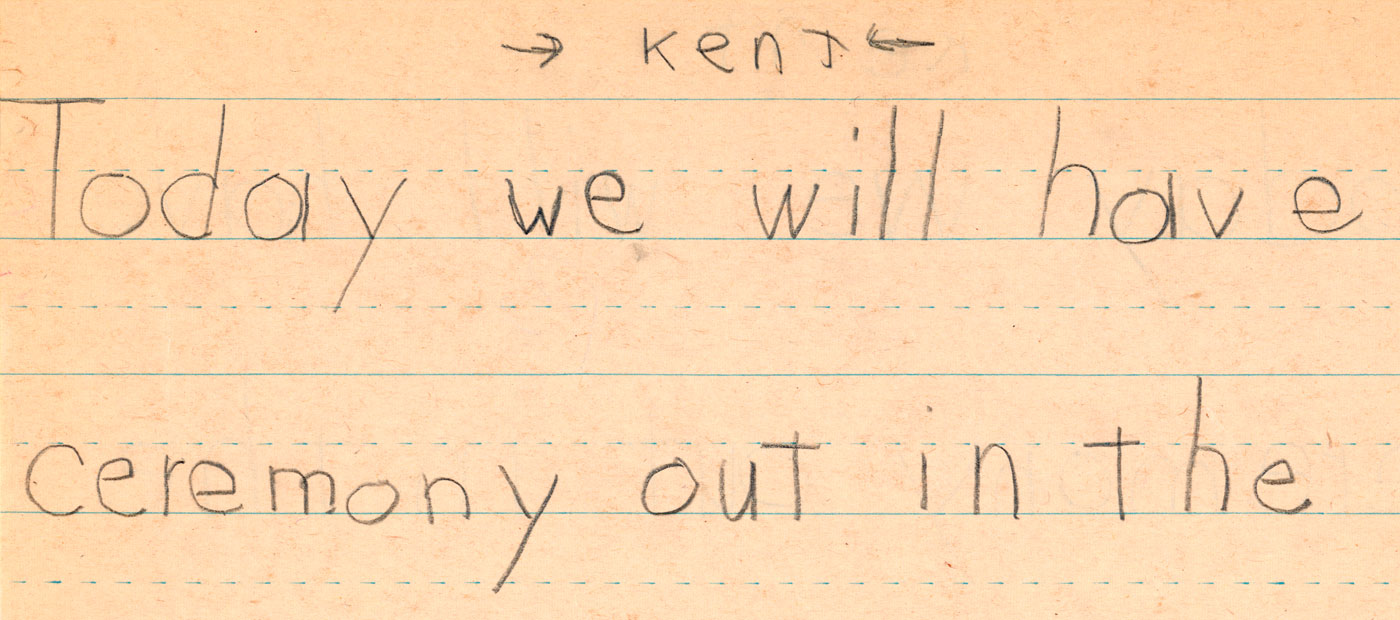 → Kent ←
Today we will have
ceremony out in the